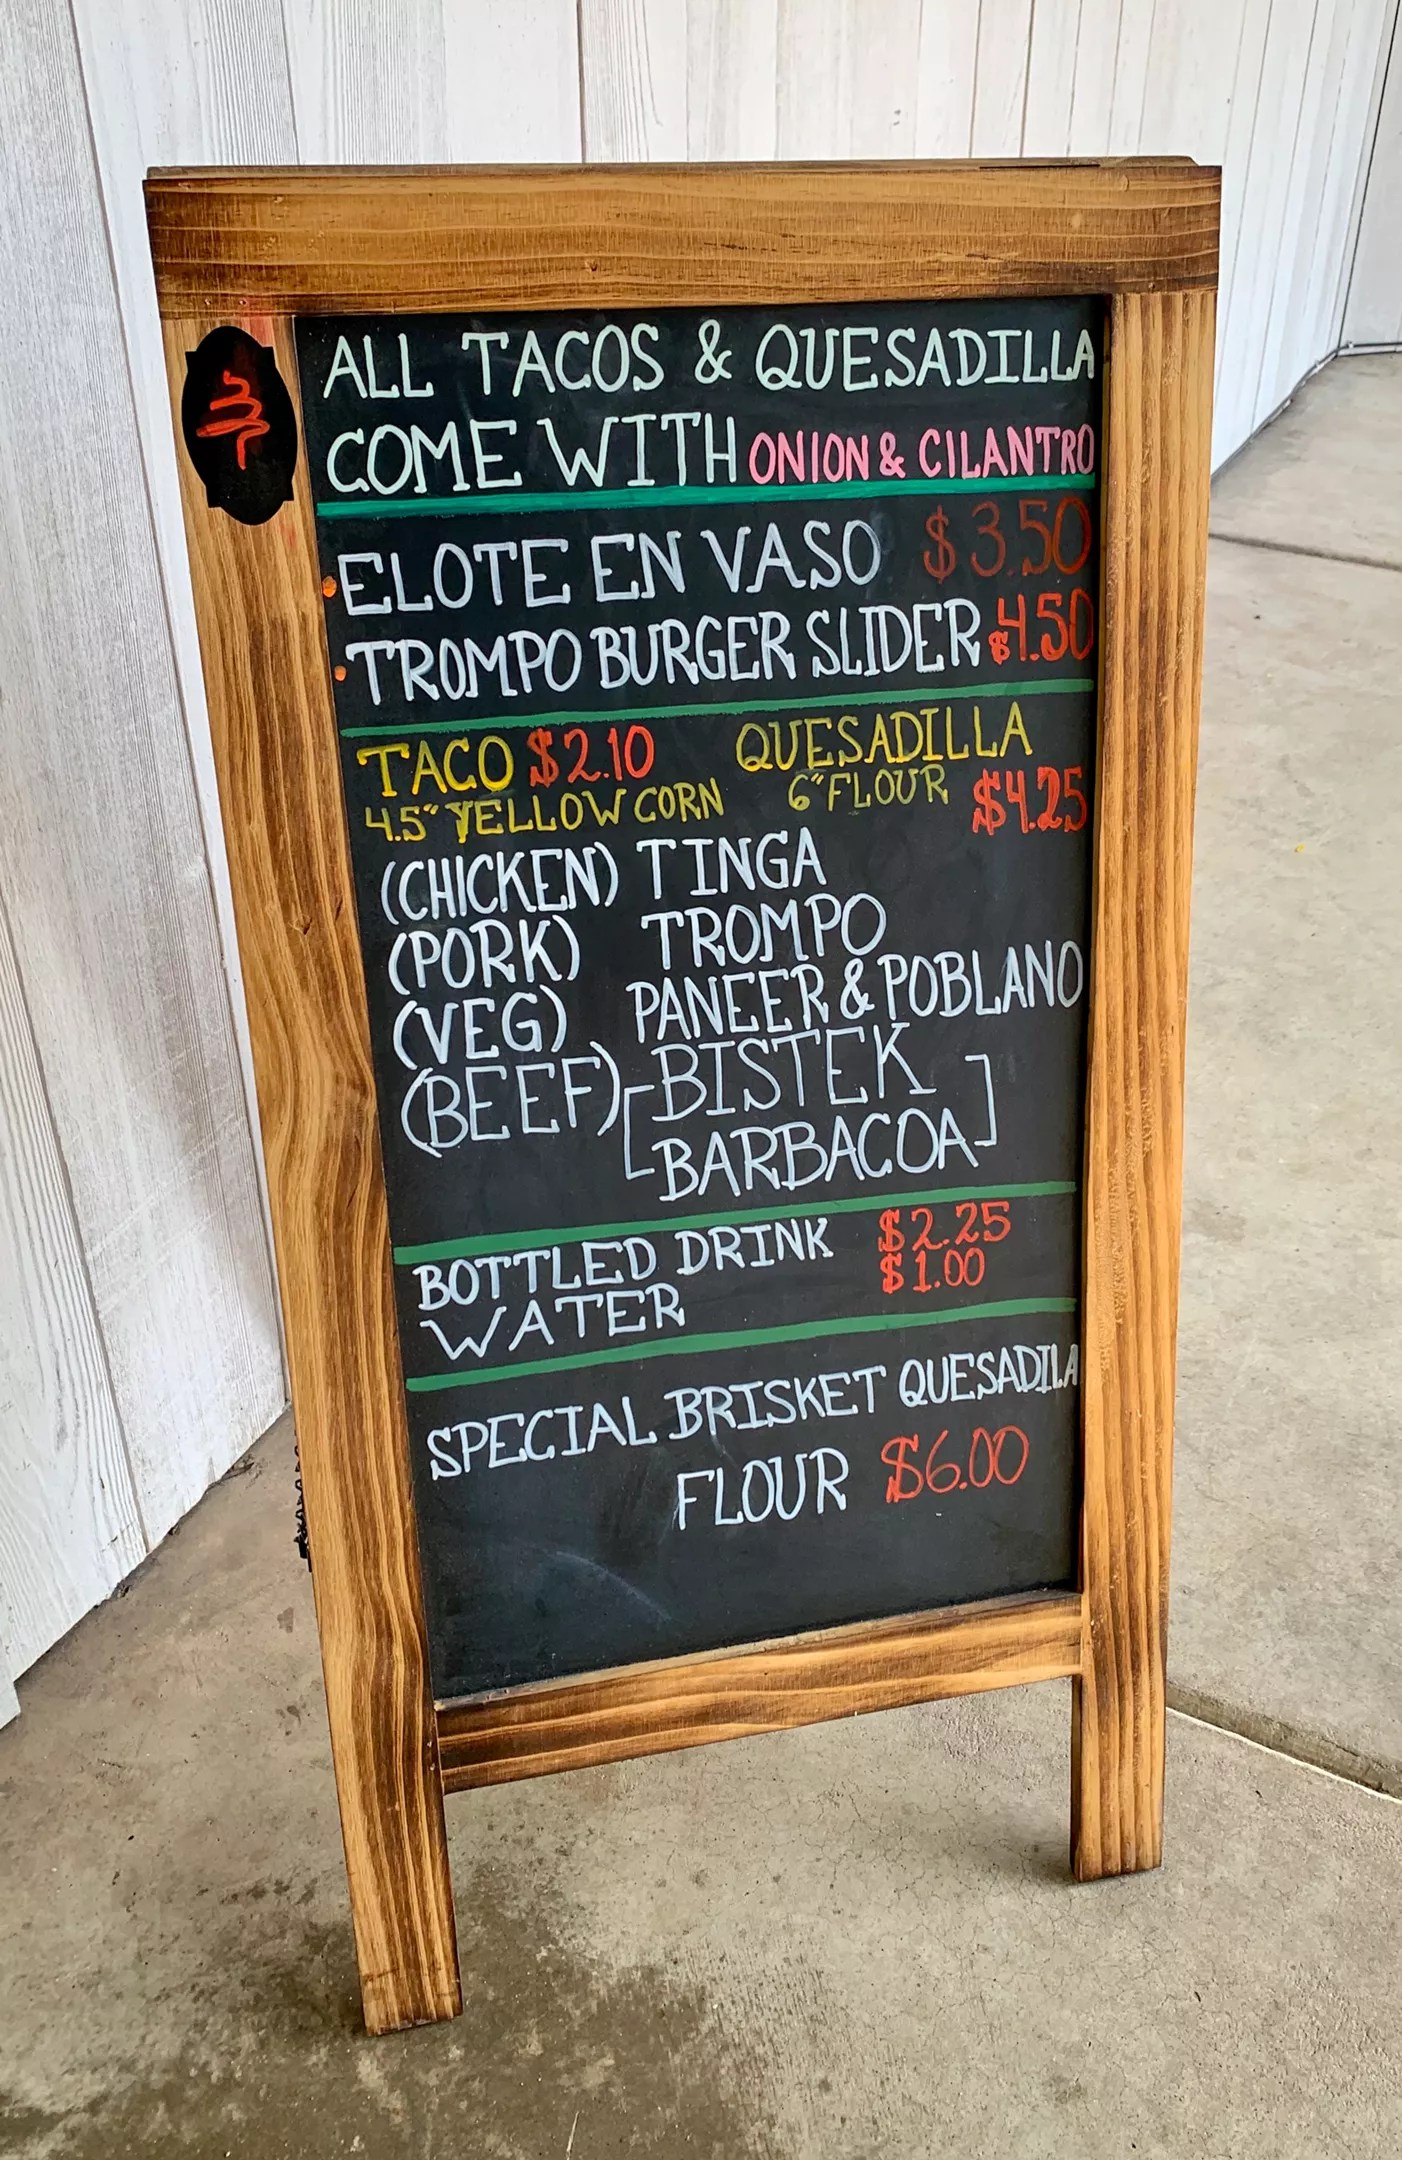 ALL TACOS & QUESADILLA
COME WITH ONION & CILANTRO
ELOTE EN VASO $3.50
TROMPO BURGER SLIDER $4.50
TACO $2.10 QUESADILLA
4.5" YELLOW CORN 6" FLOUR $4.25
(CHICKEN) TINGA
(PORK) TROMPO
(VEG) PANEER & POBLANO
(BEEF) [BISTEK
BARBACOA]
BOTTLED DRINK $2.25
WATER $1.00
SPECIAL BRISKET QUESADILA
FLOUR $6.00